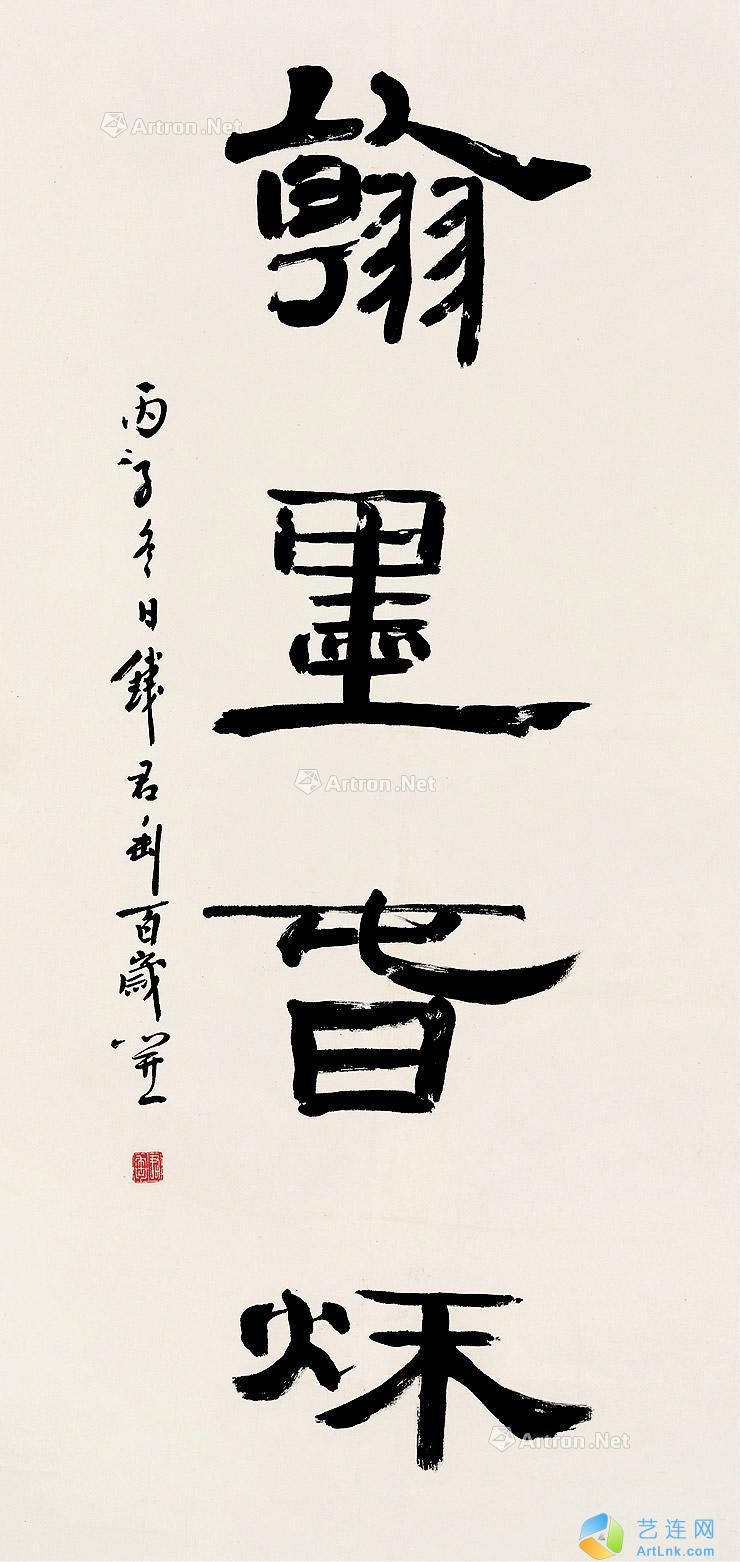 翰墨旾秌
丙子冬日錢君匋百歲
Artron.Net
Artron.Net
Artron.Net
艺连网
ArtLnk.com